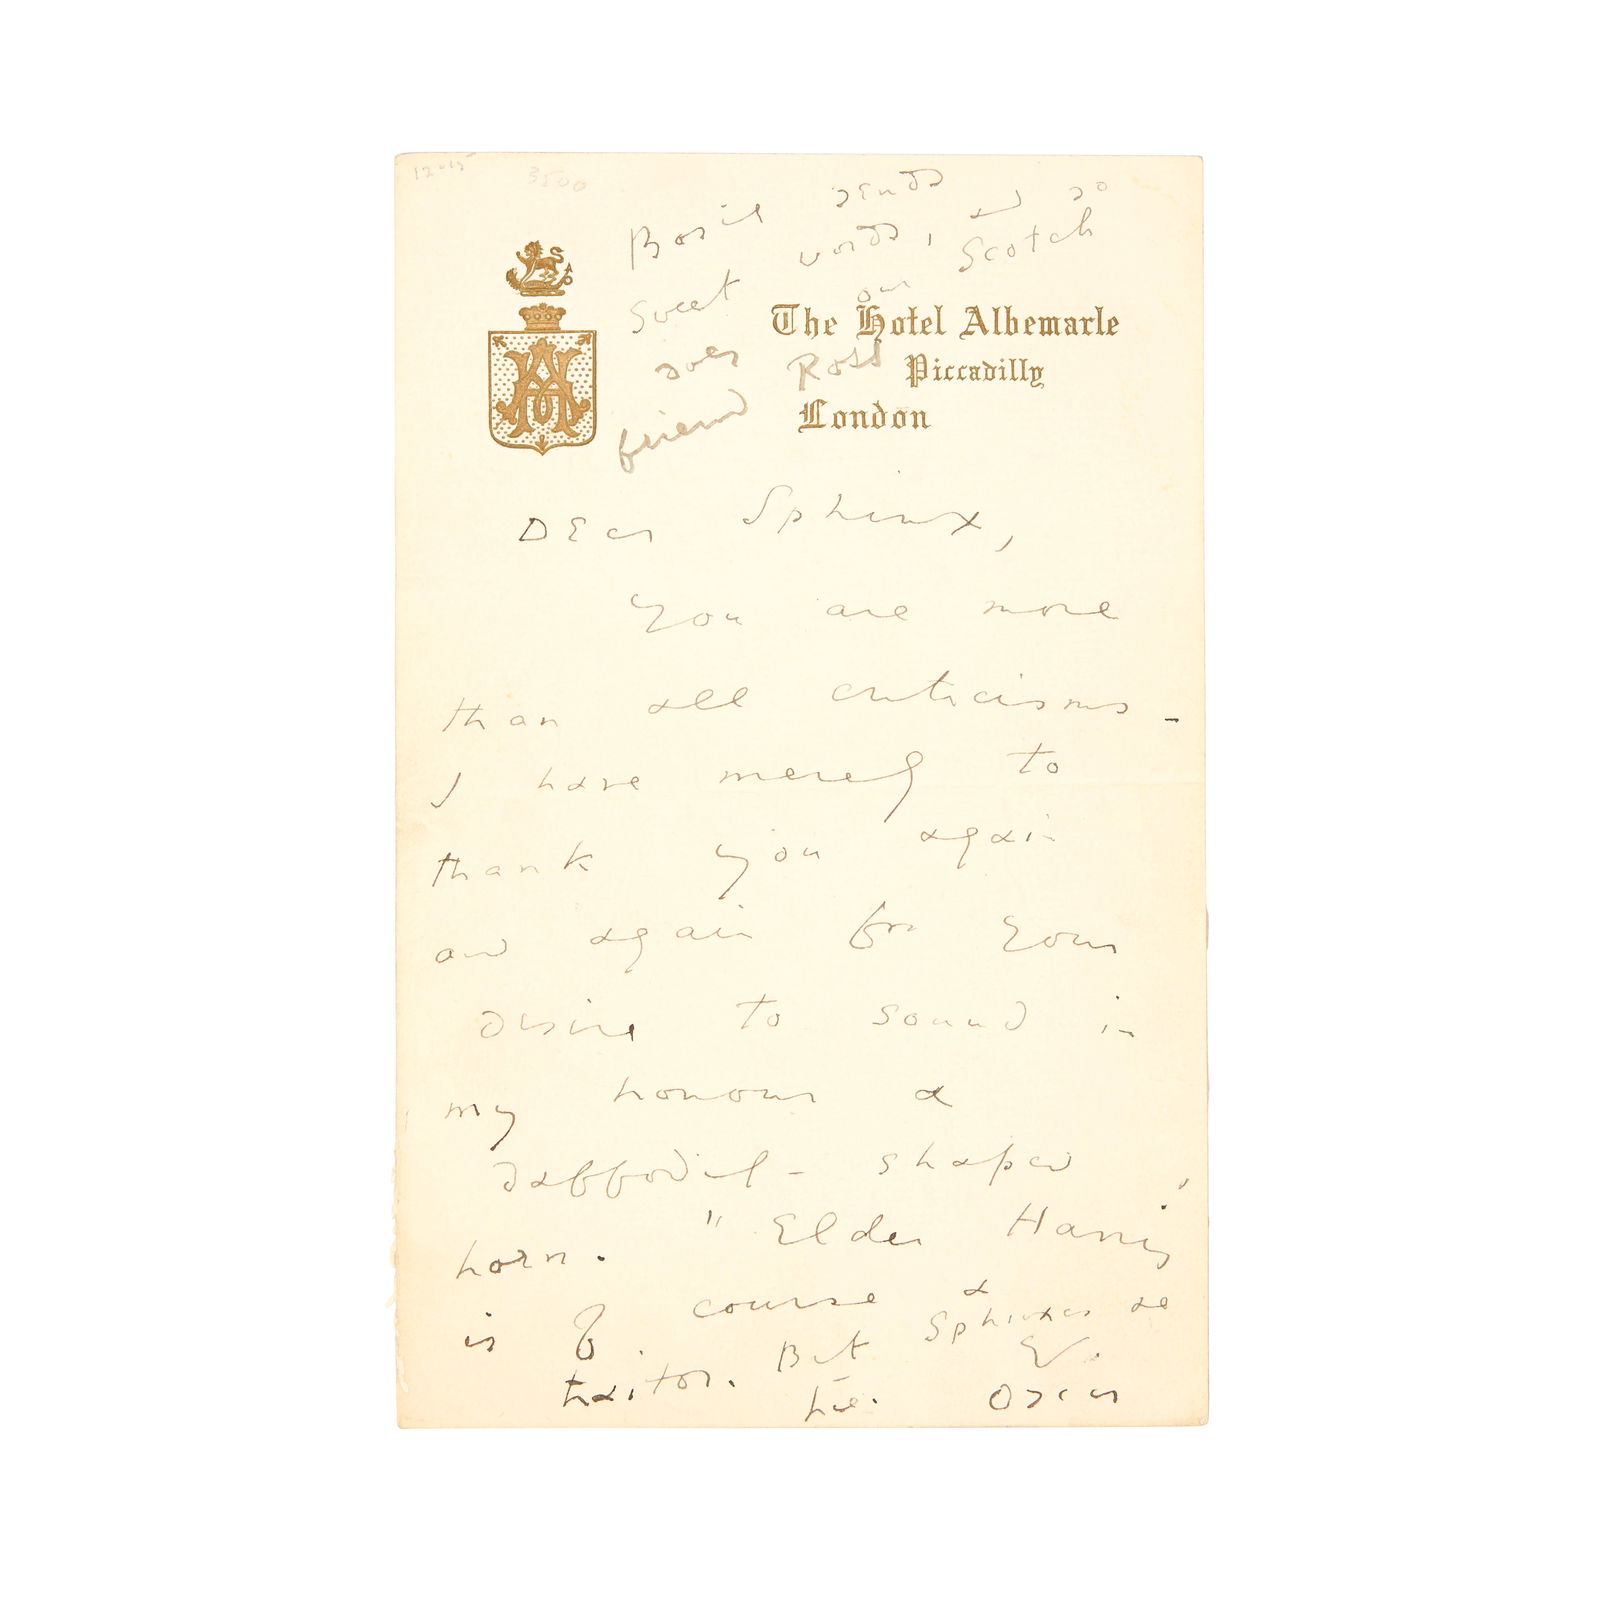 12-15 3500
Bosie sends
sweet words, and so
does our Scotch
friend Ross
The Hotel Albemarle
Piccadilly
London
Dear Sphinx,
You are more
than all criticisms -
I have merely to
thank you again
and again for your
desire to sound in
my honour a
daffodil - shaped
horn. "Elder Harris'
is of course a
traitor. But Sphinxes are
true.
Oscar